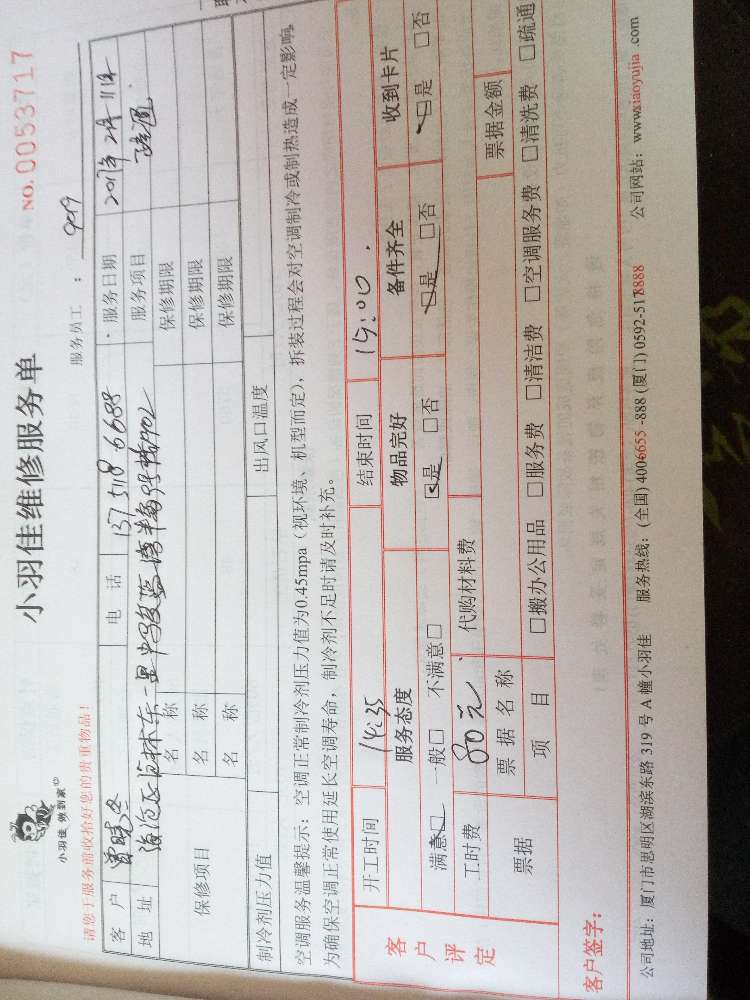 小羽佳 做到家
小羽佳维修服务单
NO. 0053717
服务员工：
请您于服务前收拾好您的贵重物品！
客户 电话 137 5118 6688 服务日期 2017年2月11日
地址 服务项目 疏通
保修项目 名称 保修期限
名称 保修期限
名称 保修期限
制冷剂压力值 出风口温度
空调服务温馨提示：空调正常制冷剂压力值为0.45mpa（视环境、机型而定），拆装过程会对空调制冷或制热造成一定影响。
为确保空调正常使用延长空调寿命，制冷剂不足时请及时补充。
客户评定
开工时间 14:35 结束时间 15:00
服务态度 物品完好 备件齐全 收到卡片
满意□ 一般□ 不满意□ □是 □否 □是 □否 □是 □否
工时费 80元 代购材料费
票据 票据名称 票据金额
项目 □搬办公用品 □服务费 □清洁费 □空调服务费 □清洗费 □疏通
客户签字：
公司地址：厦门市思明区湖滨东路 319 号 A 幢小羽佳 服务热线：(全国) 4006655 -888 (厦门) 0592-5178888 公司网站：www.xiaoyujia .com